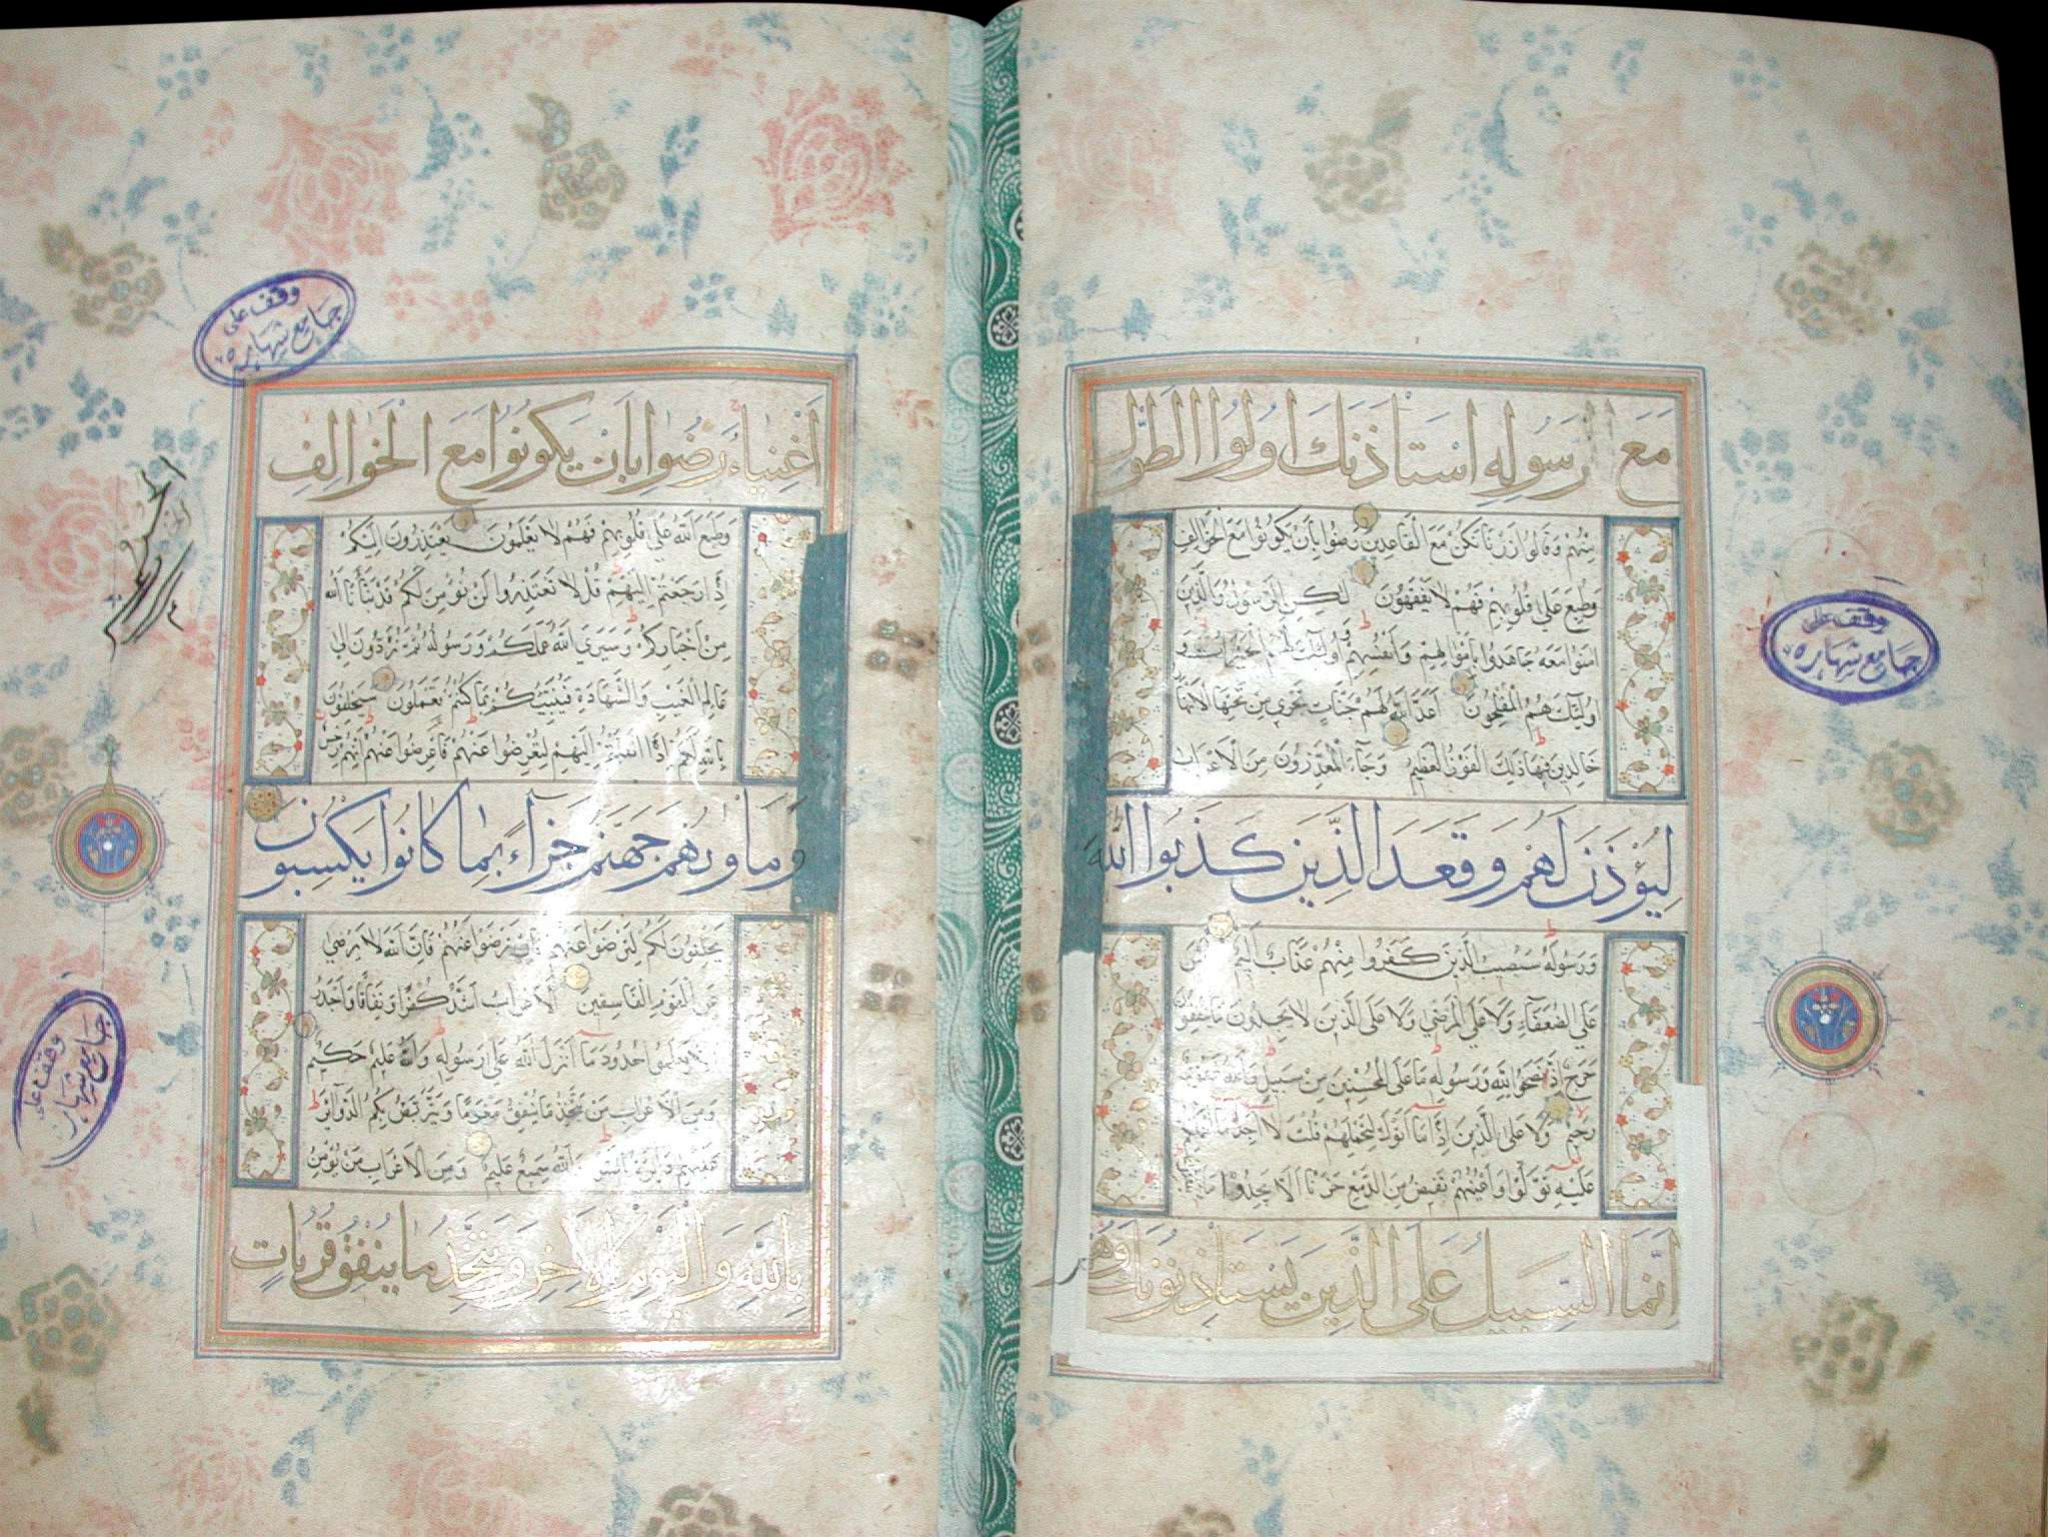 مَعَ رَسُولِهِ اسْتَأْذَنَكَ اُولُوا الطَّوْلِ
مِنْهُمْ وَقَالُوا ذَرْنَا نَكُنْ مَعَ الْقَاعِدِينَ رَضُوا بِأَنْ يَكُونُوا مَعَ الْخَوَالِفِ
وَطُبِعَ عَلَى قُلُوبِهِمْ فَهُمْ لَا يَفْقَهُونَ لٰكِنِ الرَّسُولُ وَالَّذِينَ
اٰمَنُوا مَعَهُ جَاهَدُوا بِاَمْوَالِهِمْ وَاَنْفُسِهِمْ وَاُولٰئِكَ لَهُمُ الْخَيْرَاتُ وَ
اُولٰئِكَ هُمُ الْمُفْلِحُونَ اَعَدَّ اللّٰهُ لَهُمْ جَنَّاتٍ تَجْرِي مِنْ تَحْتِهَا الْاَنْهَارُ
خَالِدِينَ فِيهَا ذٰلِكَ الْفَوْزُ الْعَظِيمُ وَجَاءَ الْمُعَذِّرُونَ مِنَ الْاَعْرَابِ
لِيُؤْذَنَ لَهُمْ وَقَعَدَ الَّذِينَ كَذَبُوا اللّٰهَ
وَرَسُولَهُ سَيُصِيبُ الَّذِينَ كَفَرُوا مِنْهُمْ عَذَابٌ اَلِيمٌ لَيْسَ
عَلَى الضُّعَفَاءِ وَلَا عَلَى الْمَرْضٰى وَلَا عَلَى الَّذِينَ لَا يَجِدُونَ مَا يُنْفِقُونَ
حَرَجٌ اِذَا نَصَحُوا لِلّٰهِ وَرَسُولِهِ مَا عَلَى الْمُحْسِنِينَ مِنْ سَبِيلٍ وَاللّٰهُ غَفُورٌ
رَحِيمٌ وَلَا عَلَى الَّذِينَ اِذَا مَا اَتَوْكَ لِتَحْمِلَهُمْ قُلْتَ لَا اَجِدُ مَا اَحْمِلُكُمْ
عَلَيْهِ تَوَلَّوْا وَاَعْيُنُهُمْ تَفِيضُ مِنَ الدَّمْعِ حَزَنًا اَلَّا يَجِدُوا مَا يُنْفِقُونَ
اِنَّمَا السَّبِيلُ عَلَى الَّذِينَ يَسْتَأْذِنُونَكَ وَهُمْ
وقف على
جامع شهاره
اَغْنِيَاءُ رَضُوا بِاَنْ يَكُونُوا مَعَ الْخَوَالِفِ
وَطَبَعَ اللّٰهُ عَلَى قُلُوبِهِمْ فَهُمْ لَا يَعْلَمُونَ يَعْتَذِرُونَ اِلَيْكُمْ
اِذَا رَجَعْتُمْ اِلَيْهِمْ قُلْ لَا تَعْتَذِرُوا لَنْ نُؤْمِنَ لَكُمْ قَدْ نَبَّأَنَا اللّٰهُ
مِنْ اَخْبَارِكُمْ وَسَيَرَى اللّٰهُ عَمَلَكُمْ وَرَسُولُهُ ثُمَّ تُرَدُّونَ اِلَى
عَالِمِ الْغَيْبِ وَالشَّهَادَةِ فَيُنَبِّئُكُمْ بِمَا كُنْتُمْ تَعْمَلُونَ سَيَحْلِفُونَ
بِاللّٰهِ لَكُمْ اِذَا انْقَلَبْتُمْ اِلَيْهِمْ لِتُعْرِضُوا عَنْهُمْ فَاَعْرِضُوا عَنْهُمْ اِنَّهُمْ رِجْسٌ
وَمَأْوٰيهُمْ جَهَنَّمُ جَزَاءً بِمَا كَانُوا يَكْسِبُونَ
يَحْلِفُونَ لَكُمْ لِتَرْضَوْا عَنْهُمْ فَاِنْ تَرْضَوْا عَنْهُمْ فَاِنَّ اللّٰهَ لَا يَرْضٰى
عَنِ الْقَوْمِ الْفَاسِقِينَ اَلْاَعْرَابُ اَشَدُّ كُفْرًا وَنِفَاقًا وَاَجْدَرُ
اَلَّا يَعْلَمُوا حُدُودَ مَا اَنْزَلَ اللّٰهُ عَلَى رَسُولِهِ وَاللّٰهُ عَلِيمٌ حَكِيمٌ
وَمِنَ الْاَعْرَابِ مَنْ يَتَّخِذُ مَا يُنْفِقُ مَغْرَمًا وَيَتَرَبَّصُ بِكُمُ الدَّوَائِرَ
عَلَيْهِمْ دَائِرَةُ السَّوْءِ وَاللّٰهُ سَمِيعٌ عَلِيمٌ وَمِنَ الْاَعْرَابِ مَنْ يُؤْمِنُ
بِاللّٰهِ وَالْيَوْمِ الْاٰخِرِ وَيَتَّخِذُ مَا يُنْفِقُ قُرُبَاتٍ
وقف على
جامع شهاره
وقف على
جامع شهاره